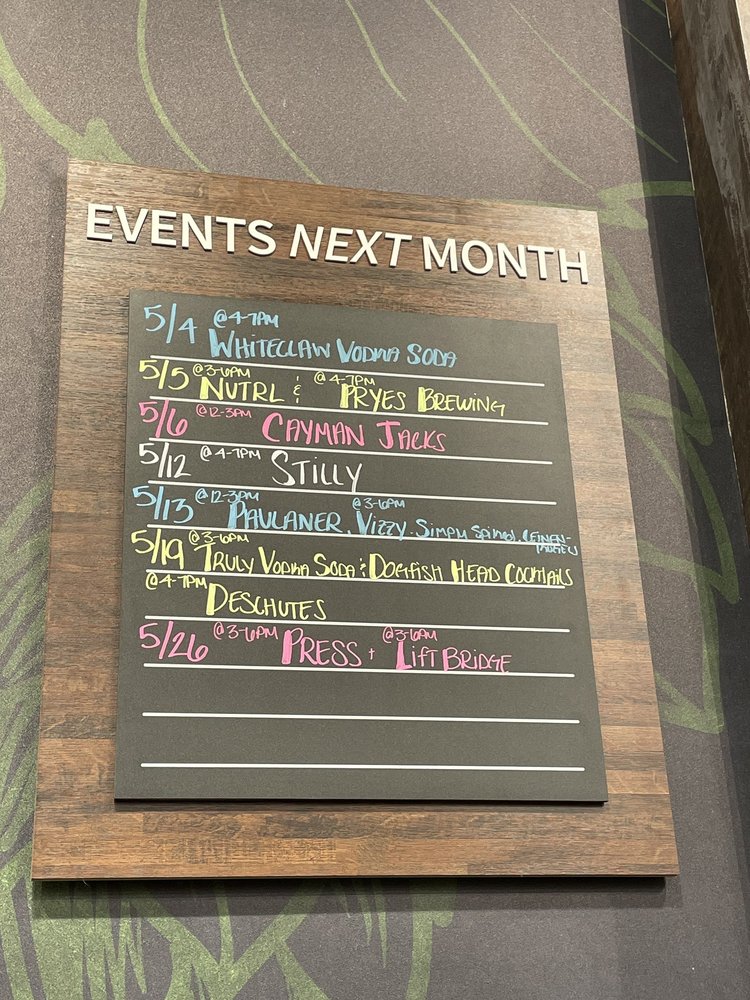 EVENTS NEXT MONTH
5/4 @4-7PM WHITECLAW VODKA SODA
5/5 @3-6PM NUTRL & @4-7PM PRYES BREWING
5/6 @12-3PM CAYMAN JACKS
5/12 @4-7PM STILLY
5/13 @12-3PM PAULANER, @3-6PM VIZZY, SIMPLY SPIKED, LEINEN-
KUGEL
5/19 @3-6PM TRULY VODKA SODA & DOGFISH HEAD COCKTAILS
@4-7PM DESCHUTES
5/26 @3-6PM PRESS + @3-6PM LIFT BRIDGE